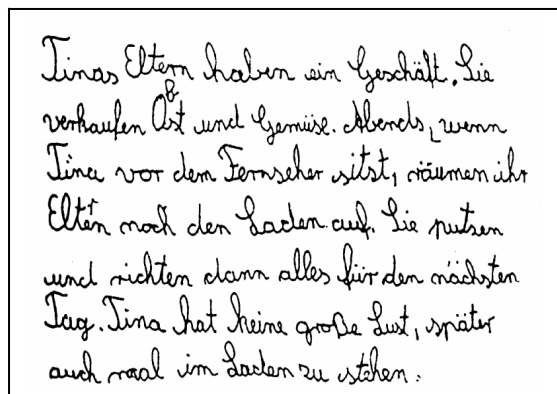 Tinas Eltern haben ein Geschäft. Sie
verkaufen Obst und Gemüse. Abends, wenn
Tina vor dem Fernseher sitst, räumen ihr
Eltern noch den Laden auf. Sie putsen
und richten dann alles für den nächsten
Tag. Tina hat keine große Lust, später
auch mal im Laden zu stehen.